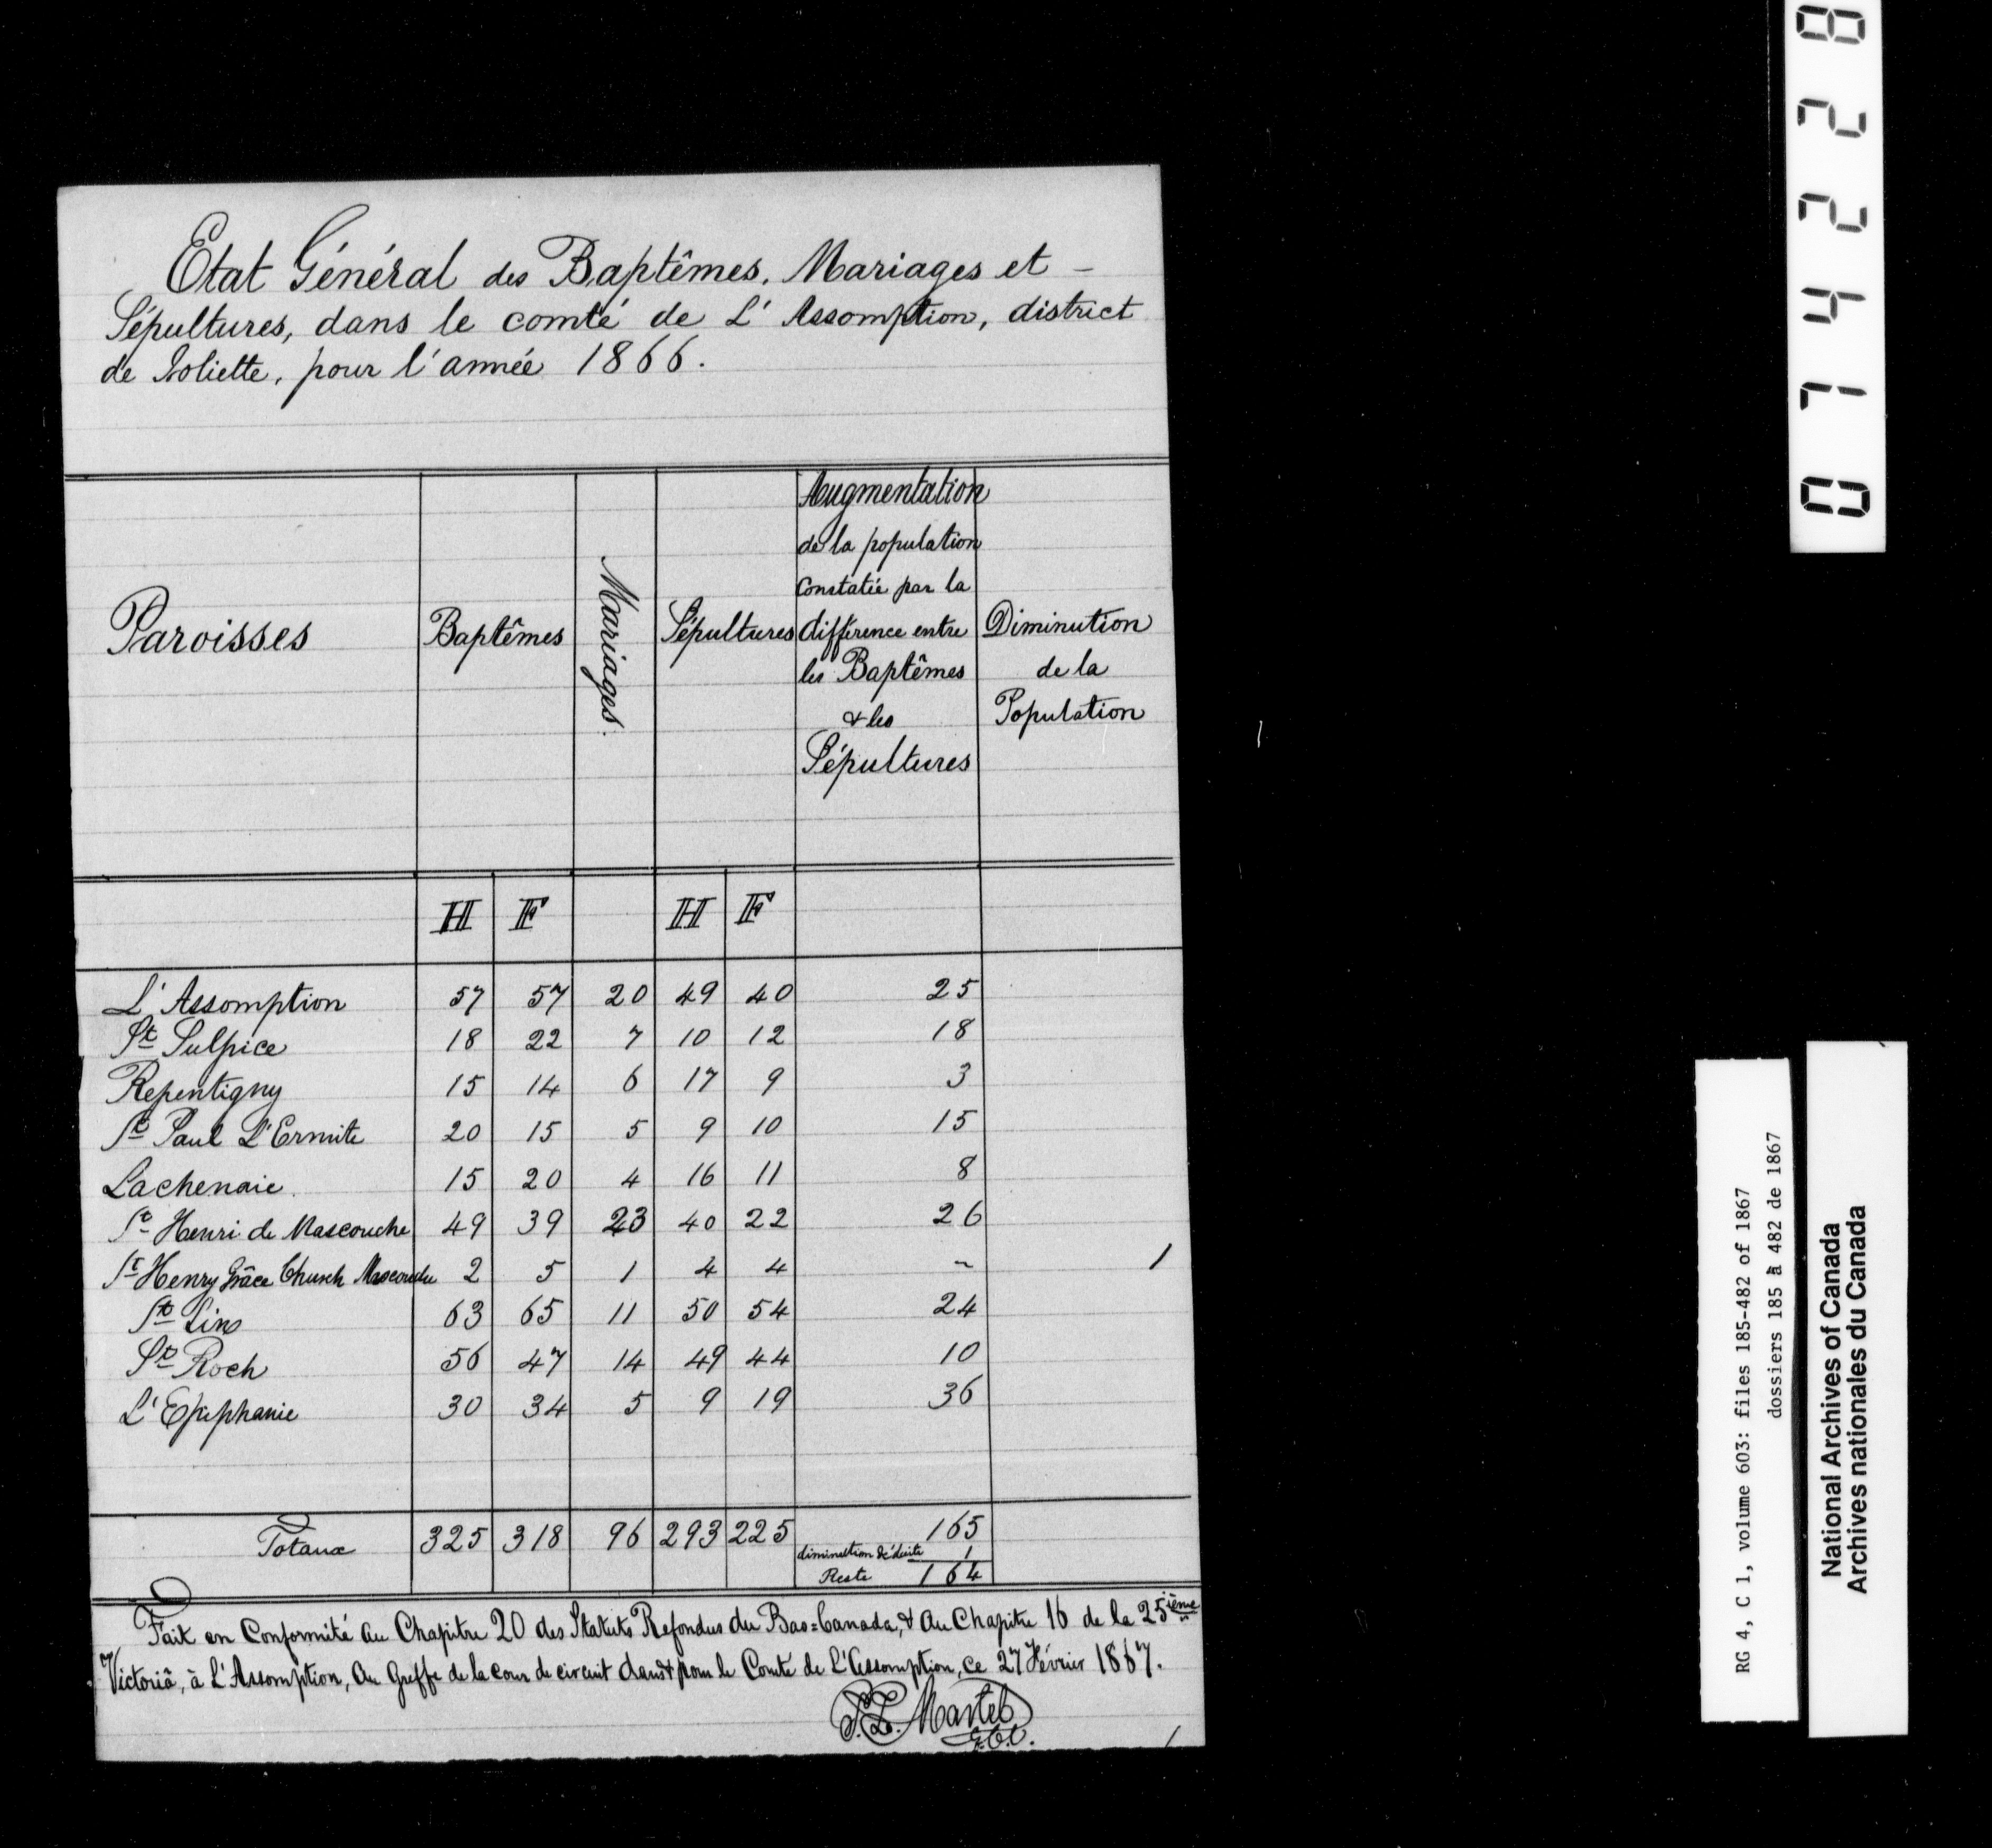 Etat Général des Baptêmes, Mariages et -
Sépultures, dans le comté de L'Assomption, district
de Joliette, pour l'année 1866.
Paroisses
Baptêmes
Mariages
Sépultures
Augmentation
de la population
Constatée par la
différence entre
les Baptêmes
& les
Sépultures
Diminution
de la
Population
H F H F
L'Assomption 57 57 20 49 40 25
St Sulpice 18 22 7 10 12 18
Repentigny 15 14 6 17 9 3
St Paul L'Ermite 20 15 5 9 10 15
Lachenaie 15 20 4 16 11 8
St Henri de Mascouche 49 39 23 40 22 26
St Henry Grâce Church Mascouche 2 5 1 4 4 ~ 1
St Lins 63 65 11 50 54 24
St Roch 56 47 14 49 44 10
L'Epiphanie 30 34 5 9 19 36
Totaux 325 318 96 293 225 165
diminution déduite 1
Reste 164
Fait en Conformité au Chapitre 20 des Statuts Refondus du Bas=Canada, & au Chapitre 16 de la 25ième
Victoriâ, à L'Assomption, au Greffe de la cour de circuit dans & pour le Comté de L'Assomption, ce 27 Février 1867.
Martel
G.C.C.
074228
RG 4, C 1, volume 603: files 185-482 of 1867
dossiers 185 à 482 de 1867
National Archives of Canada
Archives nationales du Canada